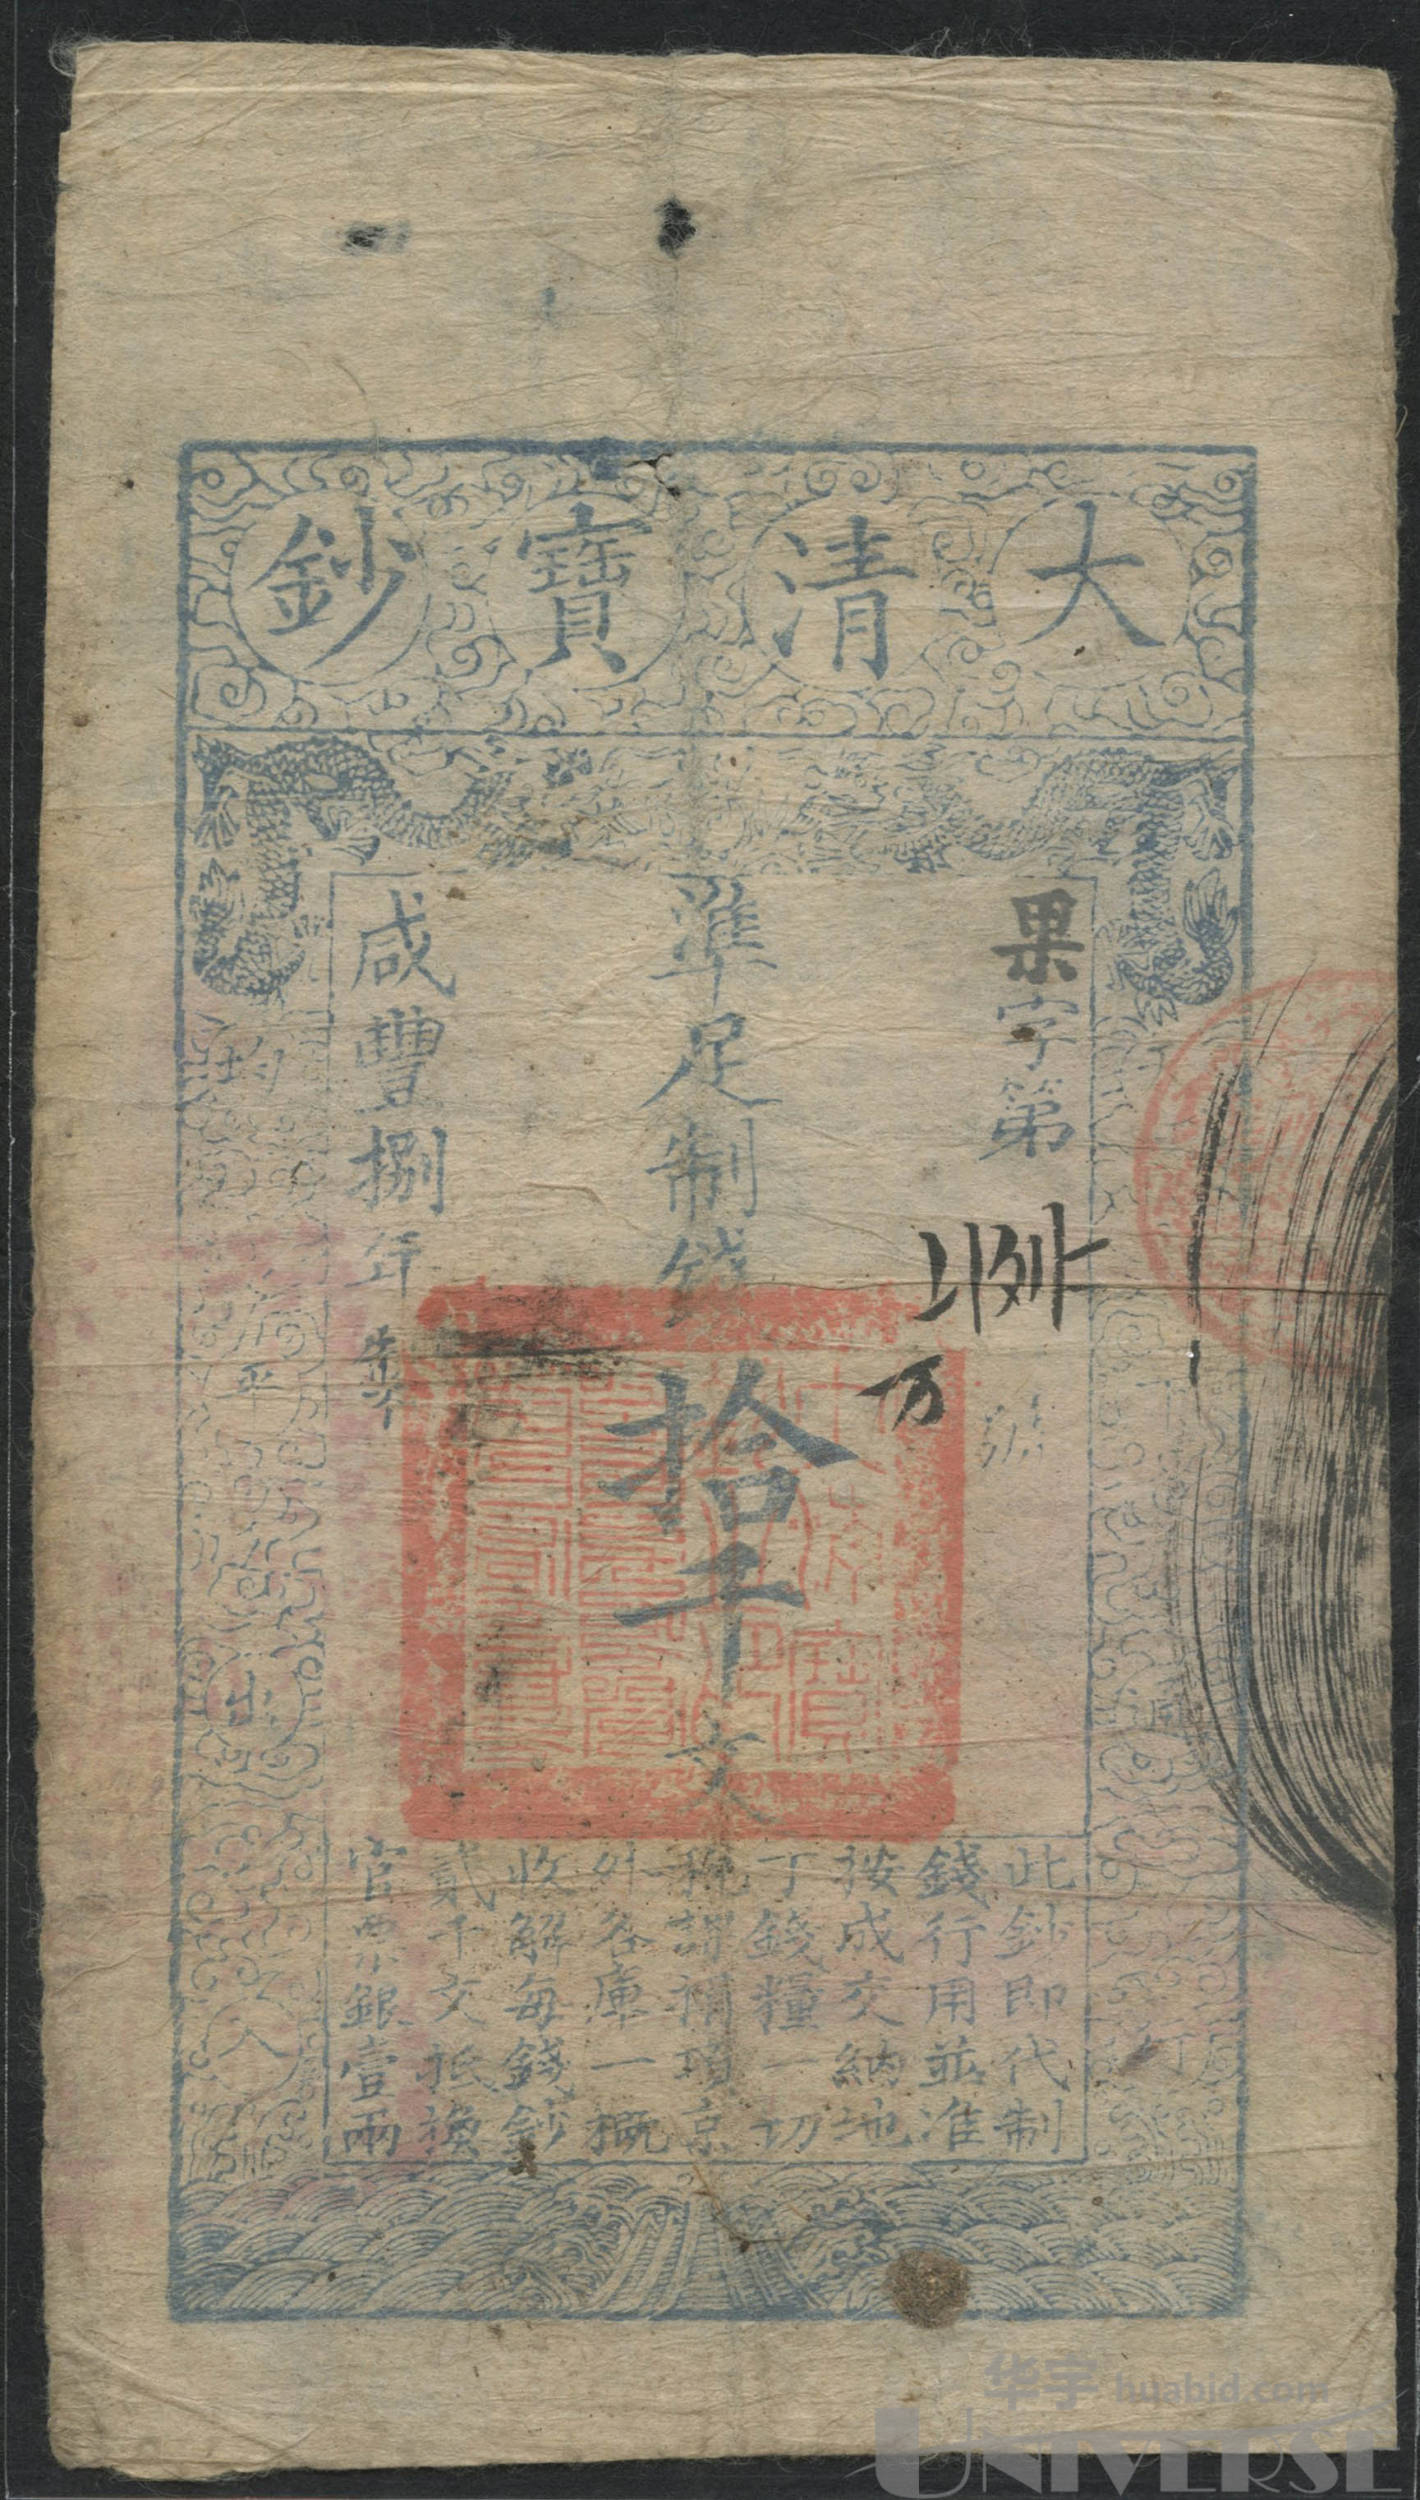 大清寶鈔
果字第
號
万
準足制錢拾千文
咸豐捌年製
此鈔即代制
錢行用並准
按成交納地
丁錢糧一切
稅課捐項京
外各庫一概
收解每錢鈔
貳千文抵換
官票銀壹兩
均
平
出
入
下
行
华宇 huabid.com
UNIVERSE